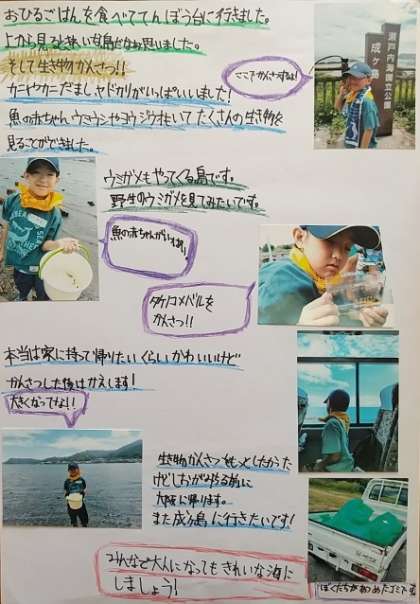 おひるごはんを食べててんぼう台に行きました。
上から見るときれいな島だなあと思いました。
そして生き物かんさつ!!
カニやカニだまし、ヤドカリがいっぱいいました!
魚の赤ちゃん、ウミウシやヨウジウオもいてたくさんの生き物を
見ることができました。
ここでかんさつするよ!
瀬戸内海国立公園
成ヶ島
ウミガメもやってくる島です。
野生のウミガメを見てみたいです。
魚の赤ちゃんがいるよ!
タケノコメバルを
かんさつ!!
本当は家に持って帰りたいくらいかわいいけど
かんさつした後はかえします!
大きくなってね!!
生き物かんさつをもっとしたかった
けどしおがみちる前に
大阪に帰ります。
また成ヶ島に行きたいです!
みんなで大人になってもきれいな海に
しましょう!
ぼくたちがあつめたゴミです